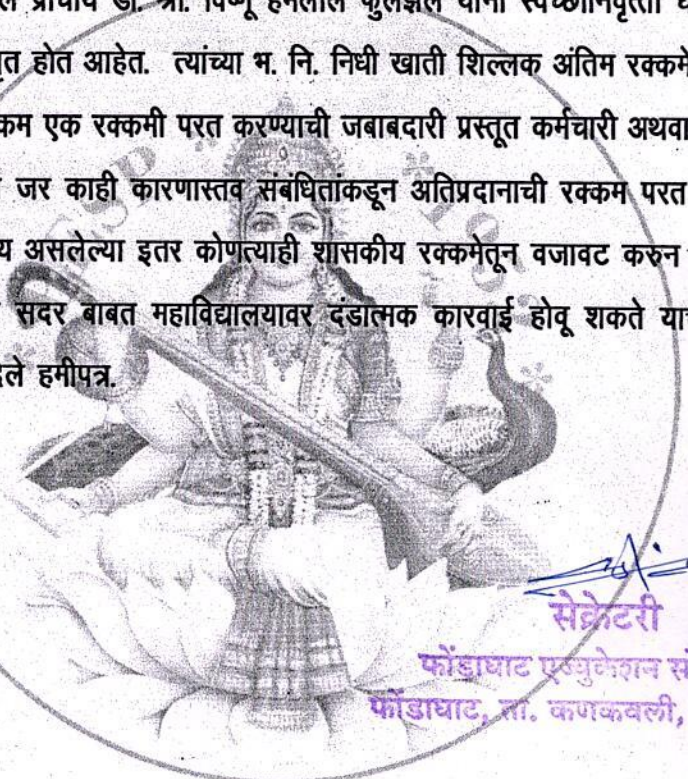 प्राचार्य डॉ. श्री. विष्णू हेमलाल फुलझेले यांनी स्वेच्छानिवृत्ती
होत आहेत. त्यांच्या भ. नि. निधी खाती शिल्लक अंतिम रक्कमे
एक रक्कमी परत करण्याची जबाबदारी प्रस्तूत कर्मचारी अथवा
जर काही कारणास्तव संबंधितांकडून अतिप्रदानाची रक्कम परत
असलेल्या इतर कोणत्याही शासकीय रक्कमेतून वजावट करुन
सदर बाबत महाविद्यालयावर दंडात्मक कारवाई होवू शकते
हमीपत्र.
सेक्रेटरी
फोंडाघाट एज्युकेशन
फोंडाघाट, ता. कणकवली,